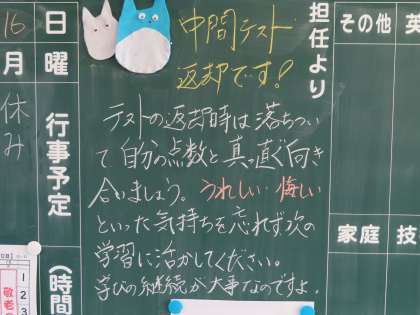 担任より
中間テスト
返却です!
テストの返却時は落ちつい
て自分の点数と真っ直ぐ向き
合いましょう。うれしい・悔しい
といった気持ちを忘れず次の
学習に活かしてください。
学びの継続が大事なのですよ.
16日
月曜
休み
行事予定
(時間
その他
英
家庭
技
1
2
3
敬老